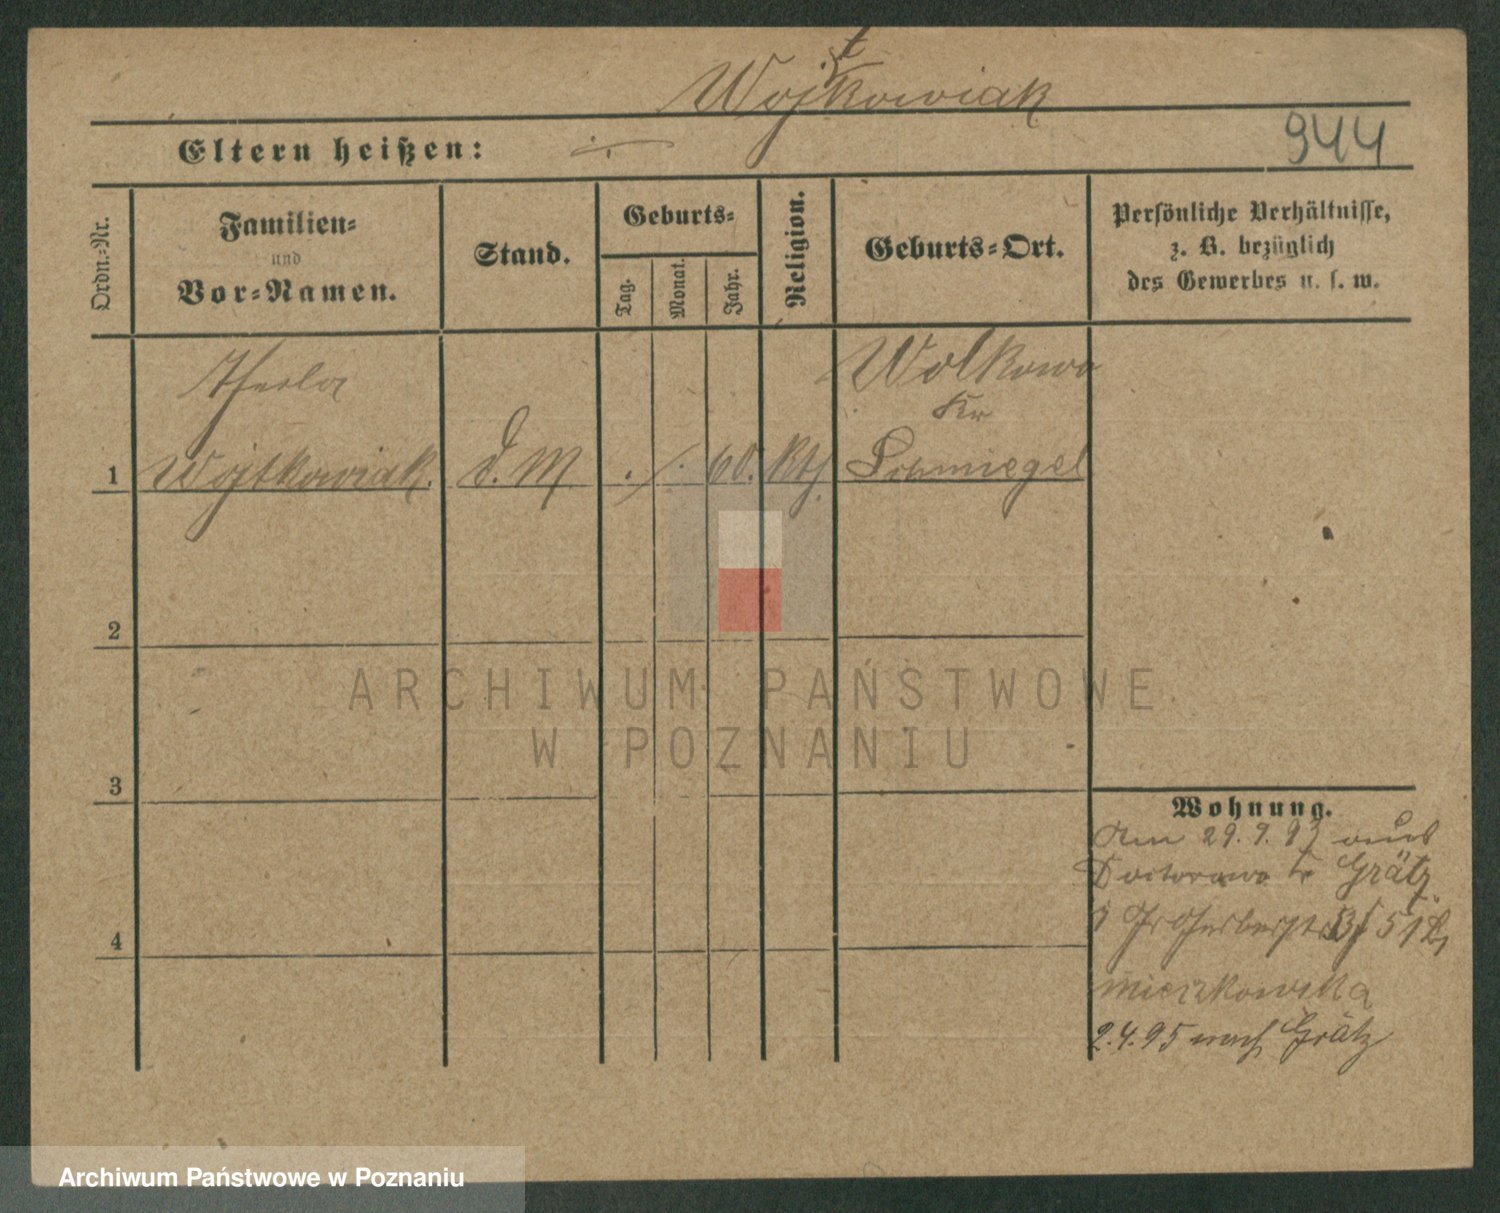 Wojtkowiak
Eltern heißen: 944
Ordn.-Nr.
Familien-
und
Vor-Namen.
Stand.
Geburts-
Tag.
Monat.
Jahr.
Religion.
Geburts-Ort.
Persönliche Verhältnisse,
z. B. bezüglich
des Gewerbes u. s. w.
Thecla Wolkowo
Kr
1 Wojtkowiak. d. M . / . 60. Kth. Schmiegel
2
3
4
Wohnung.
Am 29.9.93 aus
Doctorowo Kr Grätz.
Gr Gerberstr 51
mieszkowska
2.4.95 nach Grätz
ARCHIWUM PAŃSTWOWE
W POZNANIU
Archiwum Państwowe w Poznaniu